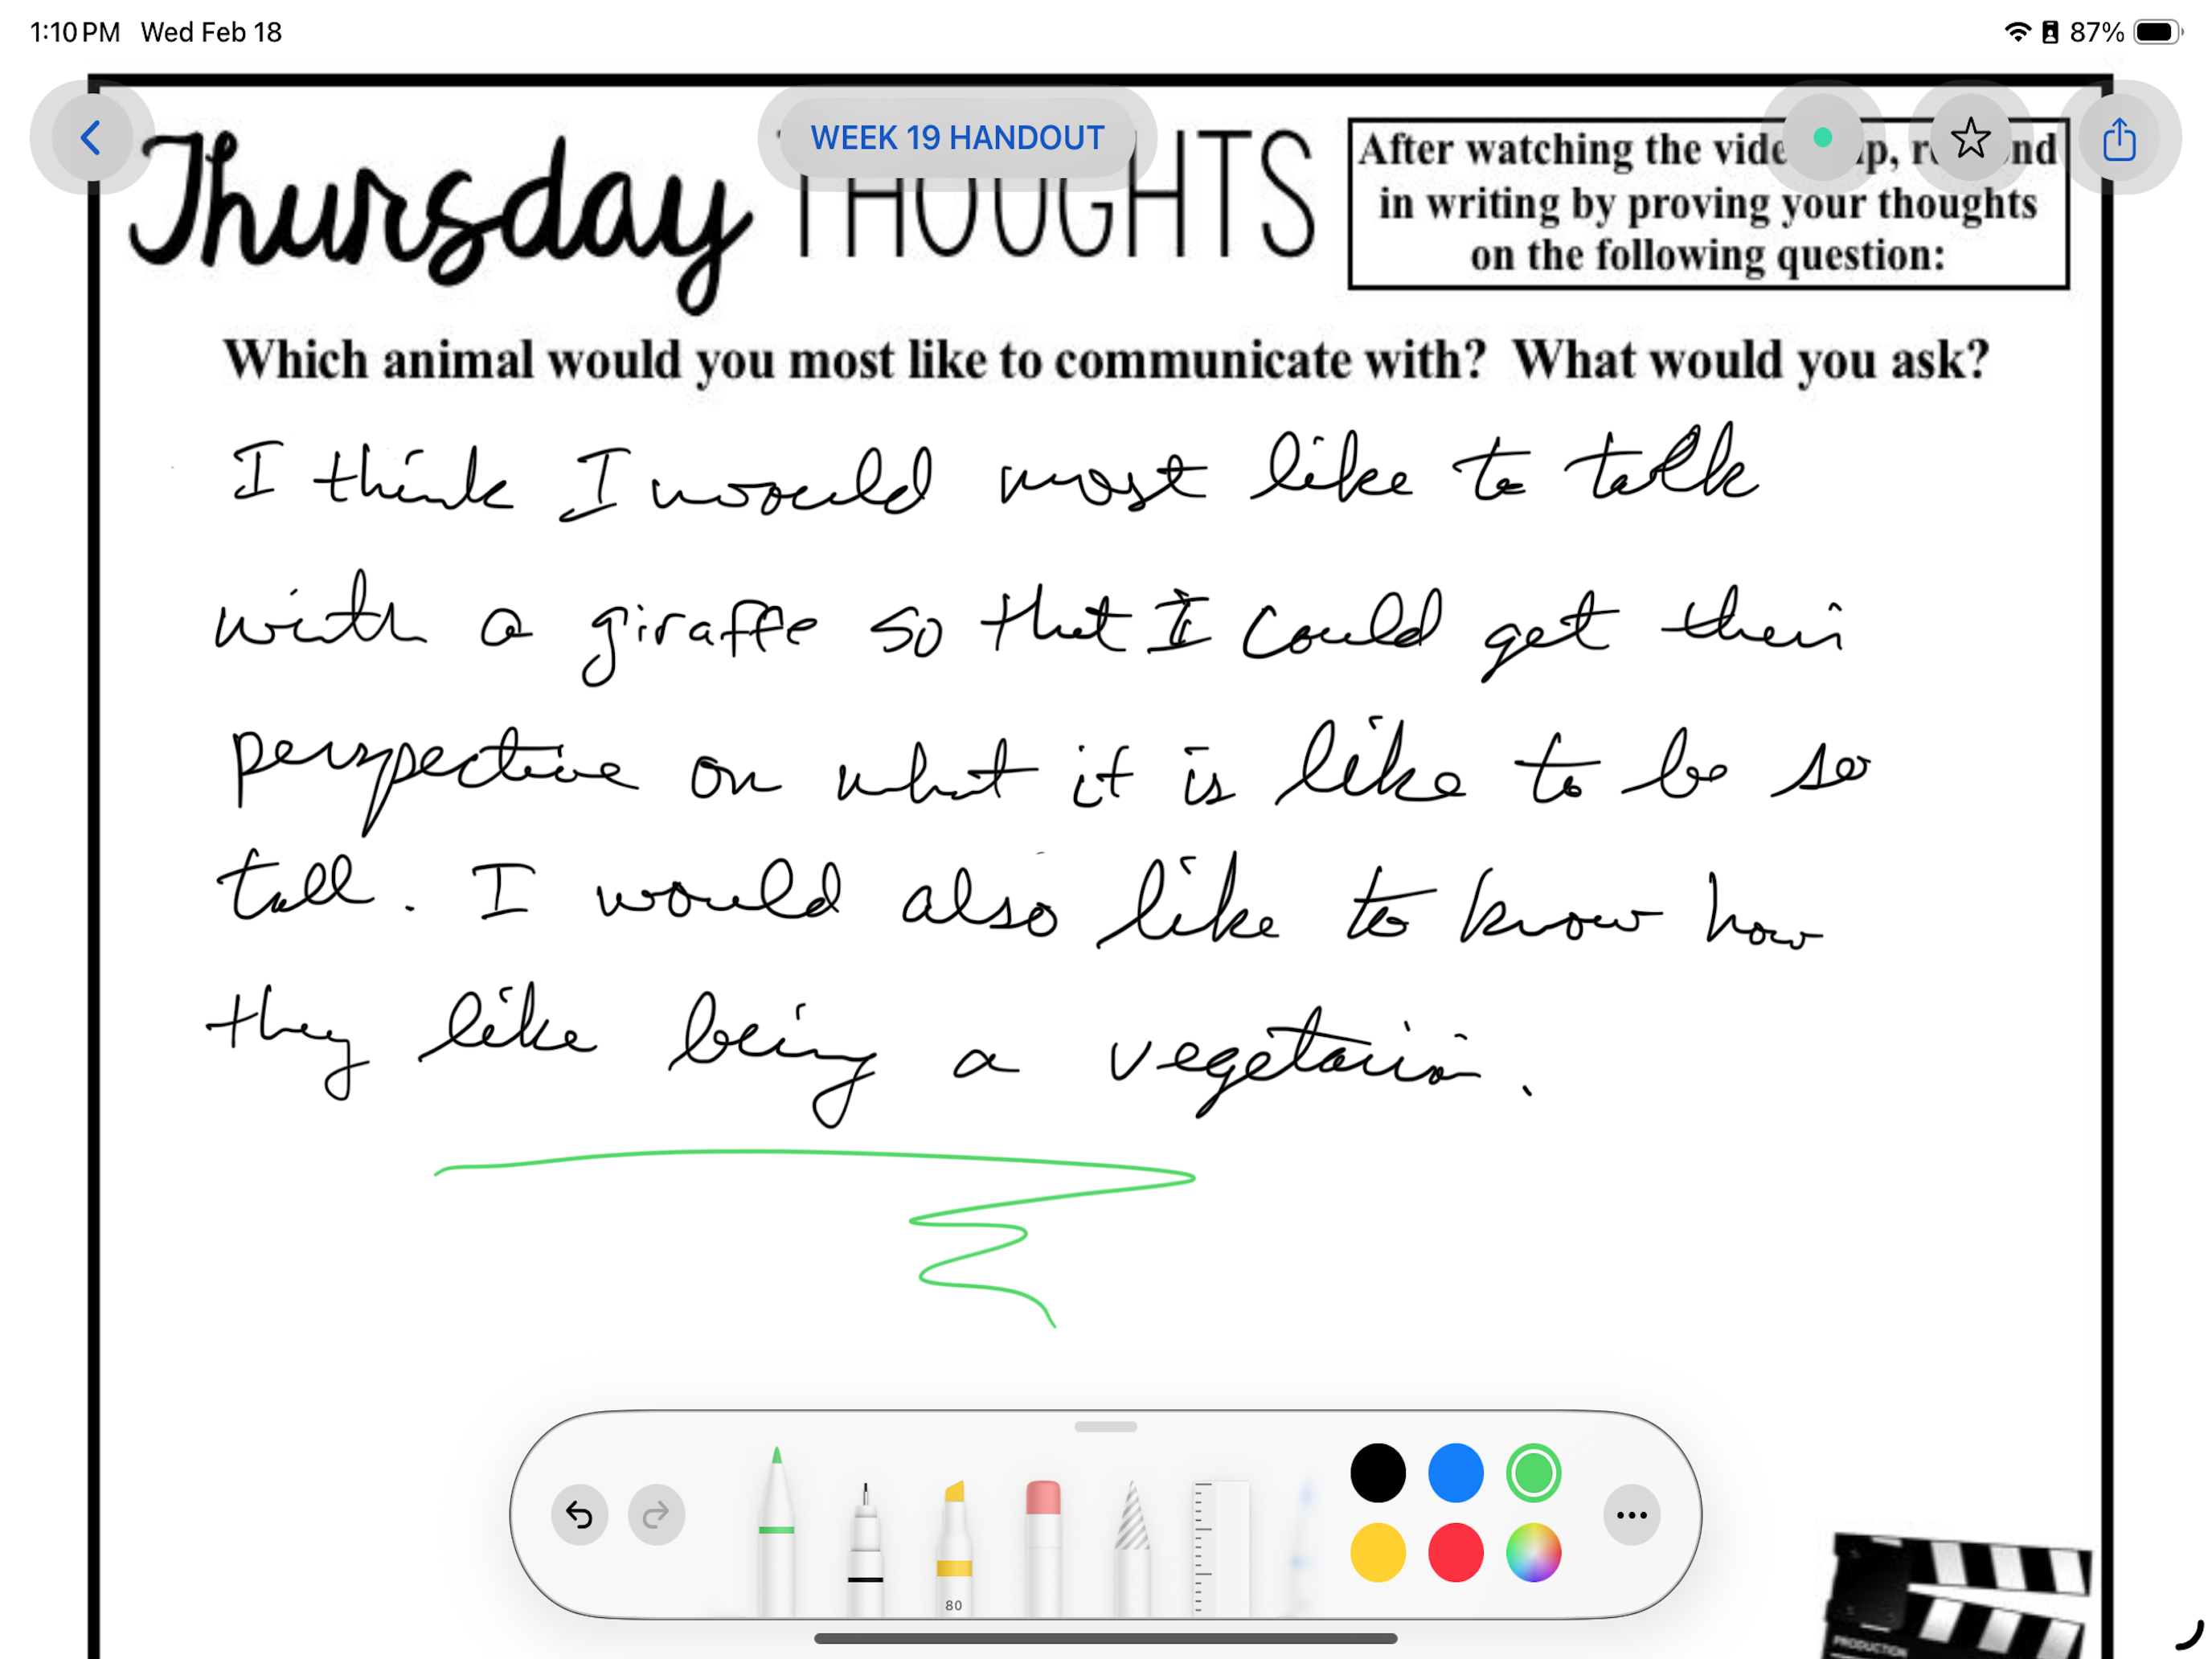 1:10 PM Wed Feb 18 87%
WEEK 19 HANDOUT
Thursday THOUGHTS
After watching the
in writing by proving your thoughts
on the following question:
Which animal would you most like to communicate with? What would you ask?
I think I would most like to talk
with a giraffe so that I could get their
perspective on what it is like to be so
tall. I would also like to know how
they like being a vegetarian.
80
PRODUCTION